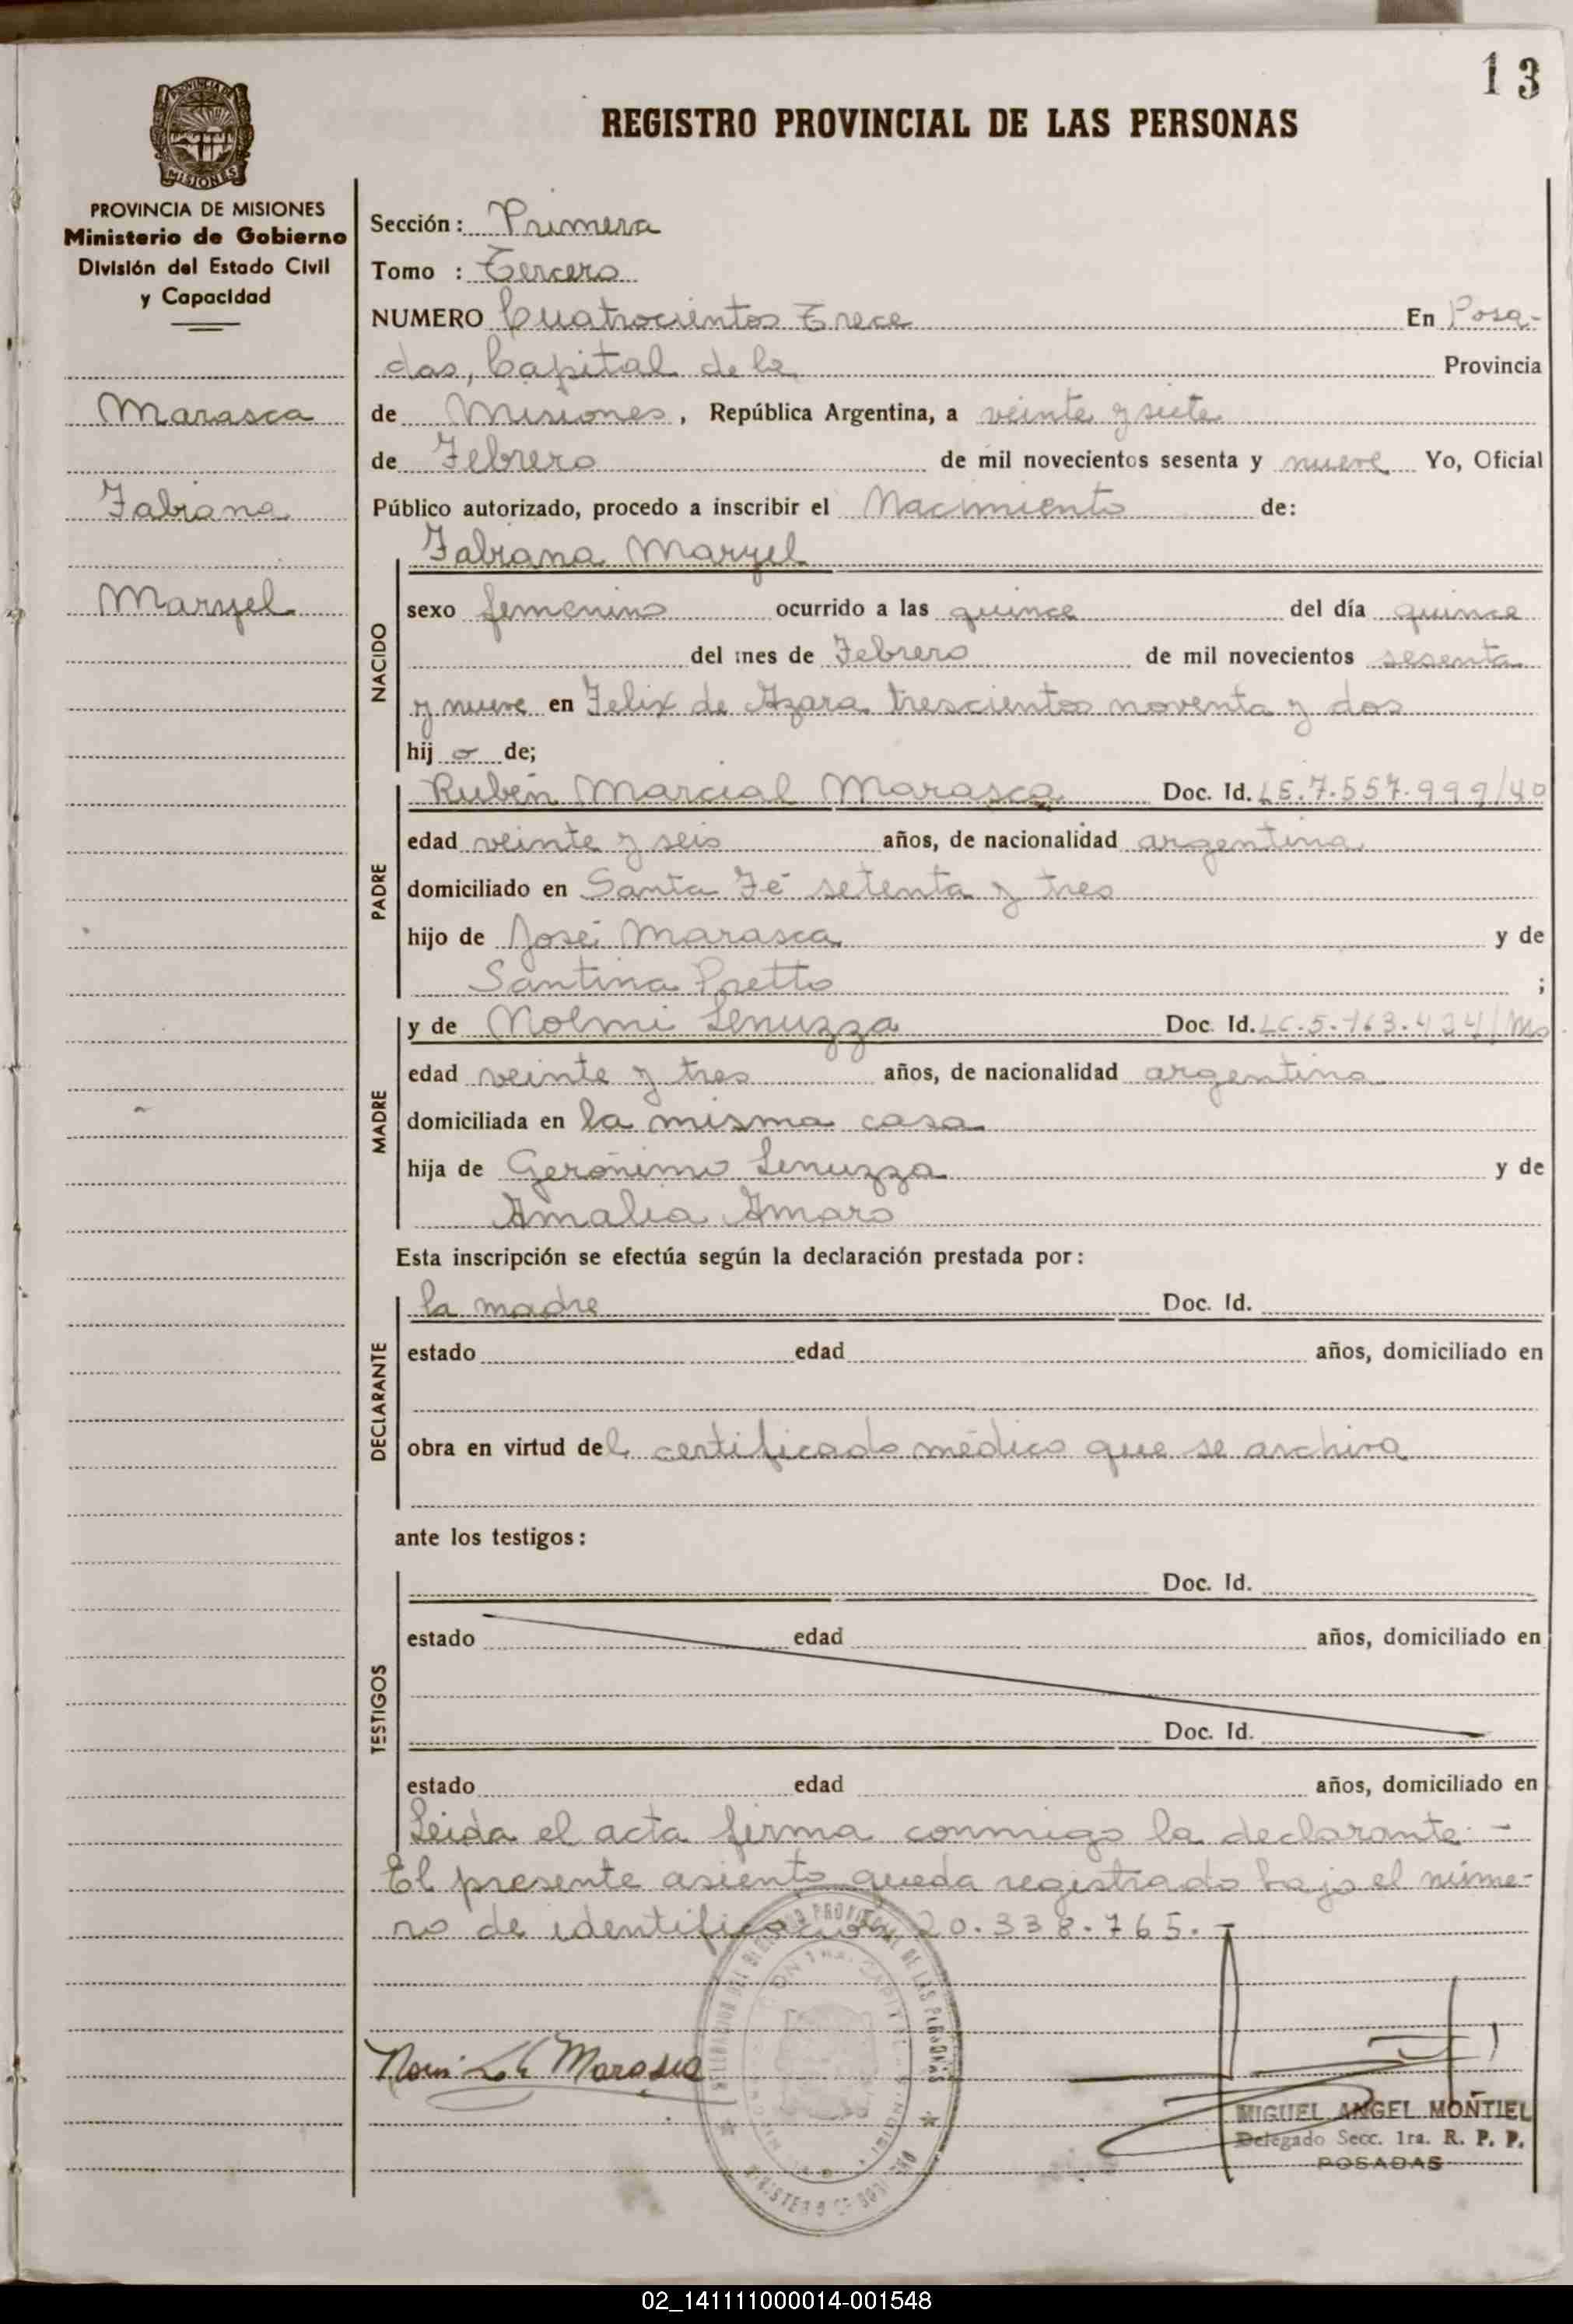 13
REGISTRO PROVINCIAL DE LAS PERSONAS
PROVINCIA DE MISIONES
MISIONES
PROVINCIA DE MISIONES
Ministerio de Gobierno
División del Estado Civil
y Capacidad
Marasca
Fabiana
Maryel
Sección: Primera
Tomo : Tercero
NUMERO Cuatrocientos Trece En Posa-
das, Capital de la Provincia
de Misiones, República Argentina, a veinte y siete
de Febrero de mil novecientos sesenta y nueve Yo, Oficial
Público autorizado, procedo a inscribir el Nacimiento de:
NACIDO
Fabiana Maryel
sexo femenino ocurrido a las quince del día quince
del mes de Febrero de mil novecientos sesenta
y nueve en Felix de Azara trescientos noventa y dos
hij a de;
PADRE
Rubén Marcial Marasca Doc. Id. LE.7.557.999/40
edad veinte y seis años, de nacionalidad argentina
domiciliado en Santa Fé setenta y tres
hijo de José Marasca y de
Santina Pretto ;
MADRE
y de Nolmi Lenuzza Doc. Id. LC.5.163.424/Ms
edad veinte y tres años, de nacionalidad argentina
domiciliada en la misma casa
hija de Gerónimo Lenuzza y de
Amalia Amaro
Esta inscripción se efectúa según la declaración prestada por:
DECLARANTE
la madre Doc. Id.
estado edad años, domiciliado en
obra en virtud del certificado médico que se archiva
ante los testigos:
TESTIGOS
Doc. Id.
estado edad años, domiciliado en
Doc. Id.
estado edad años, domiciliado en
Leida el acta firma conmigo la declarante.-
El presente asiento queda registrado bajo el núme-
ro de identificación 20.338.765.-
Marasca
MIGUEL ANGEL MONTIEL
Delegado Secc. 1ra. R. P. P.
POSADAS
02_141111000014-001548